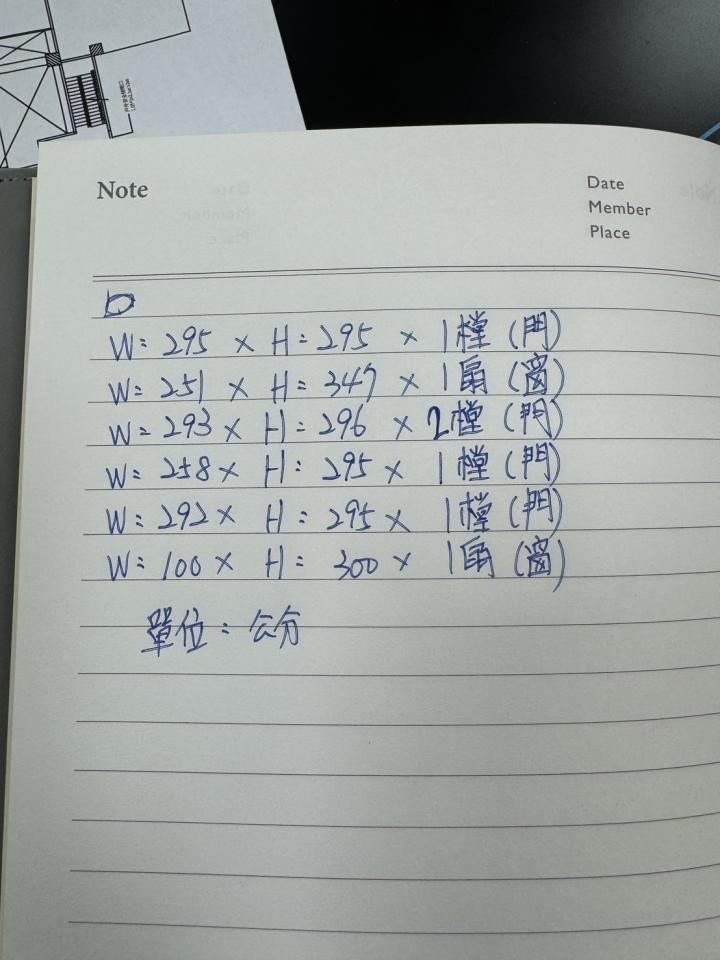 Note
Date
Member
Place
W= 295 × H= 295 × 1樘 (門)
W= 251 × H= 347 × 1扇 (窗)
W= 293 × H= 296 × 2樘 (門)
W= 258 × H= 295 × 1樘 (門)
W= 292 × H= 295 × 1樘 (門)
W= 100 × H= 300 × 1扇 (窗)
單位 = 公分